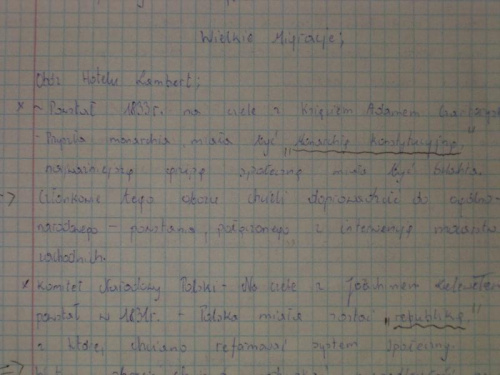 Wielkie Migracje;
Obóz Hotelu Lambert;
x ~ Powstał 1833r. na czele z księciem Adamem
- Przyszła monarchia miała być „Monarchią konstytucyjną"
najważniejszą grupą społeczną miała być szlachta.
-> Członkowie tego obozu chcieli doprowadzić do ogólno-
narodowego - powstania, połączonego z interwencją mocarstw
zachodnich.
x Komitet Narodowy Polski - Na czele z Joachimem Lelewelem
powstał w 1831r. - Polska miała zostać „republiką"
w której chciano reformować system społeczny.